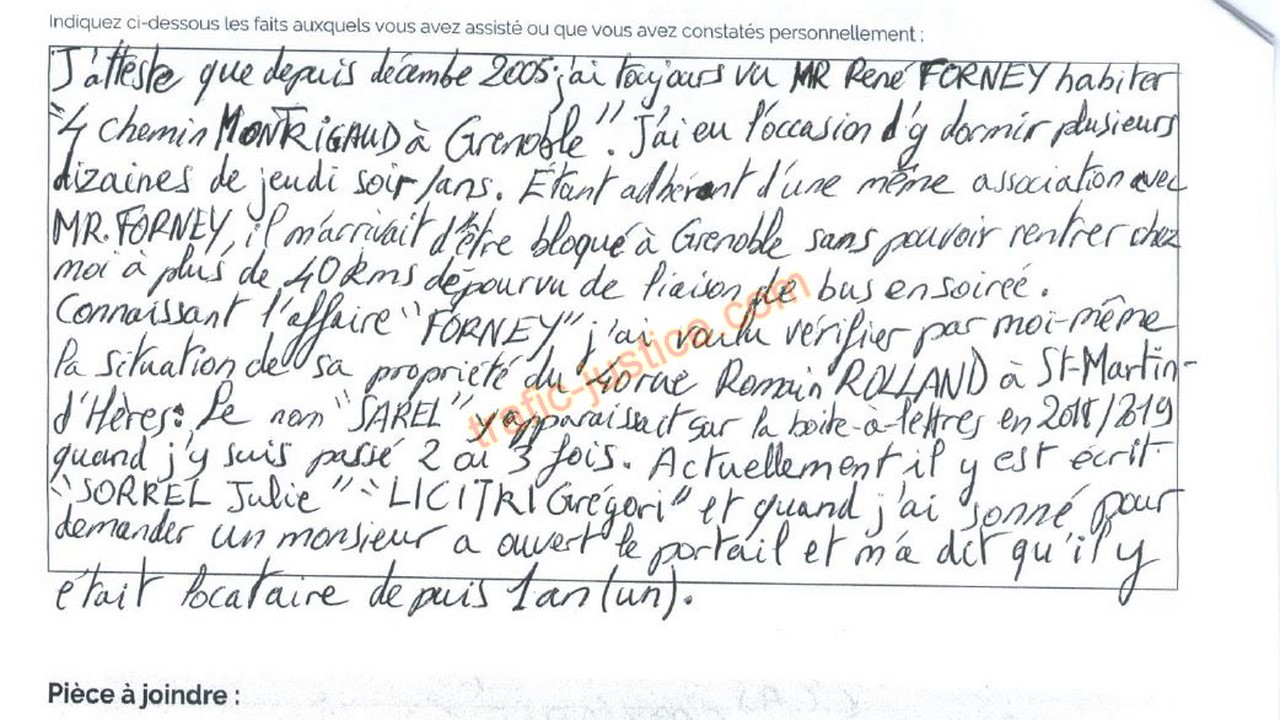 Indiquez ci-dessous les faits auxquels vous avez assisté ou que vous avez constatés personnellement :
J'atteste que depuis décembe 2005 j'ai toujours vu MR René FORNEY habiter
"4 chemin MONTRIGAUD à Grenoble". J'ai eu l'occasion d'y dormir plusieurs
dizaines de jeudi soir/ans. Étant adhérent d'une même association avec
MR. FORNEY, il m'arrivait d'être bloqué à Grenoble sans pouvoir rentrer chez
moi à plus de 40 kms dépourvu de liaison de bus en soirée.
Connaissant l'affaire "FORNEY" j'ai voulu vérifier par moi-même
la situation de sa propriété du rue Romain ROLLAND à St-Martin-
d'Hères: Le nom "SAREL" y apparaissait sur la boite-à-lettres en 2018/2019
quand j'y suis passé 2 ou 3 fois. Actuellement il y est écrit
"SORREL Julie" "LICITRI Grégori" et quand j'ai sonné pour
demander un monsieur a ouvert le portail et m'a dit qu'il y
était locataire depuis 1 an (un).
trafic-justice.com
Pièce à joindre :